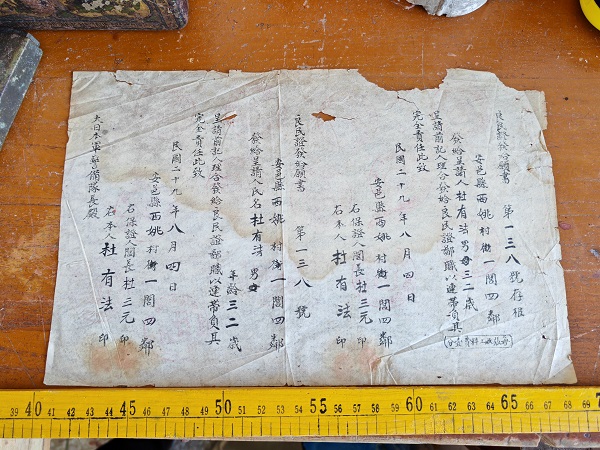 良民證發給願書 第一三八號存根
安邑縣西姚村街一閭四鄰
發給呈請人杜有法 男 三二歲
呈請前記人理合發給良民證鄙職以連帶負其
完全責任此致
民國二十九年八月四日
安邑縣西姚村街一閭四鄰
右保證人閭長杜三元 印
右本人 杜有法 印
良民證發給願書 第一三八號
安邑縣西姚村街一閭四鄰
發給呈請人民名杜有法 男
年齡三二歲
呈請前記人理合發給良民證鄙職以連帶負其
完全責任此致
民國二十九年八月四日
安邑縣西姚村街一閭四鄰
右保證人閭長杜三元 印
右本人 杜有法 印
大日本軍警備隊長殿
39 40 41 42 43 44 45 46 47 48 49 50 51 52 53 54 55 56 57 58 59 60 61 62 63 64 65 66 67 68 69